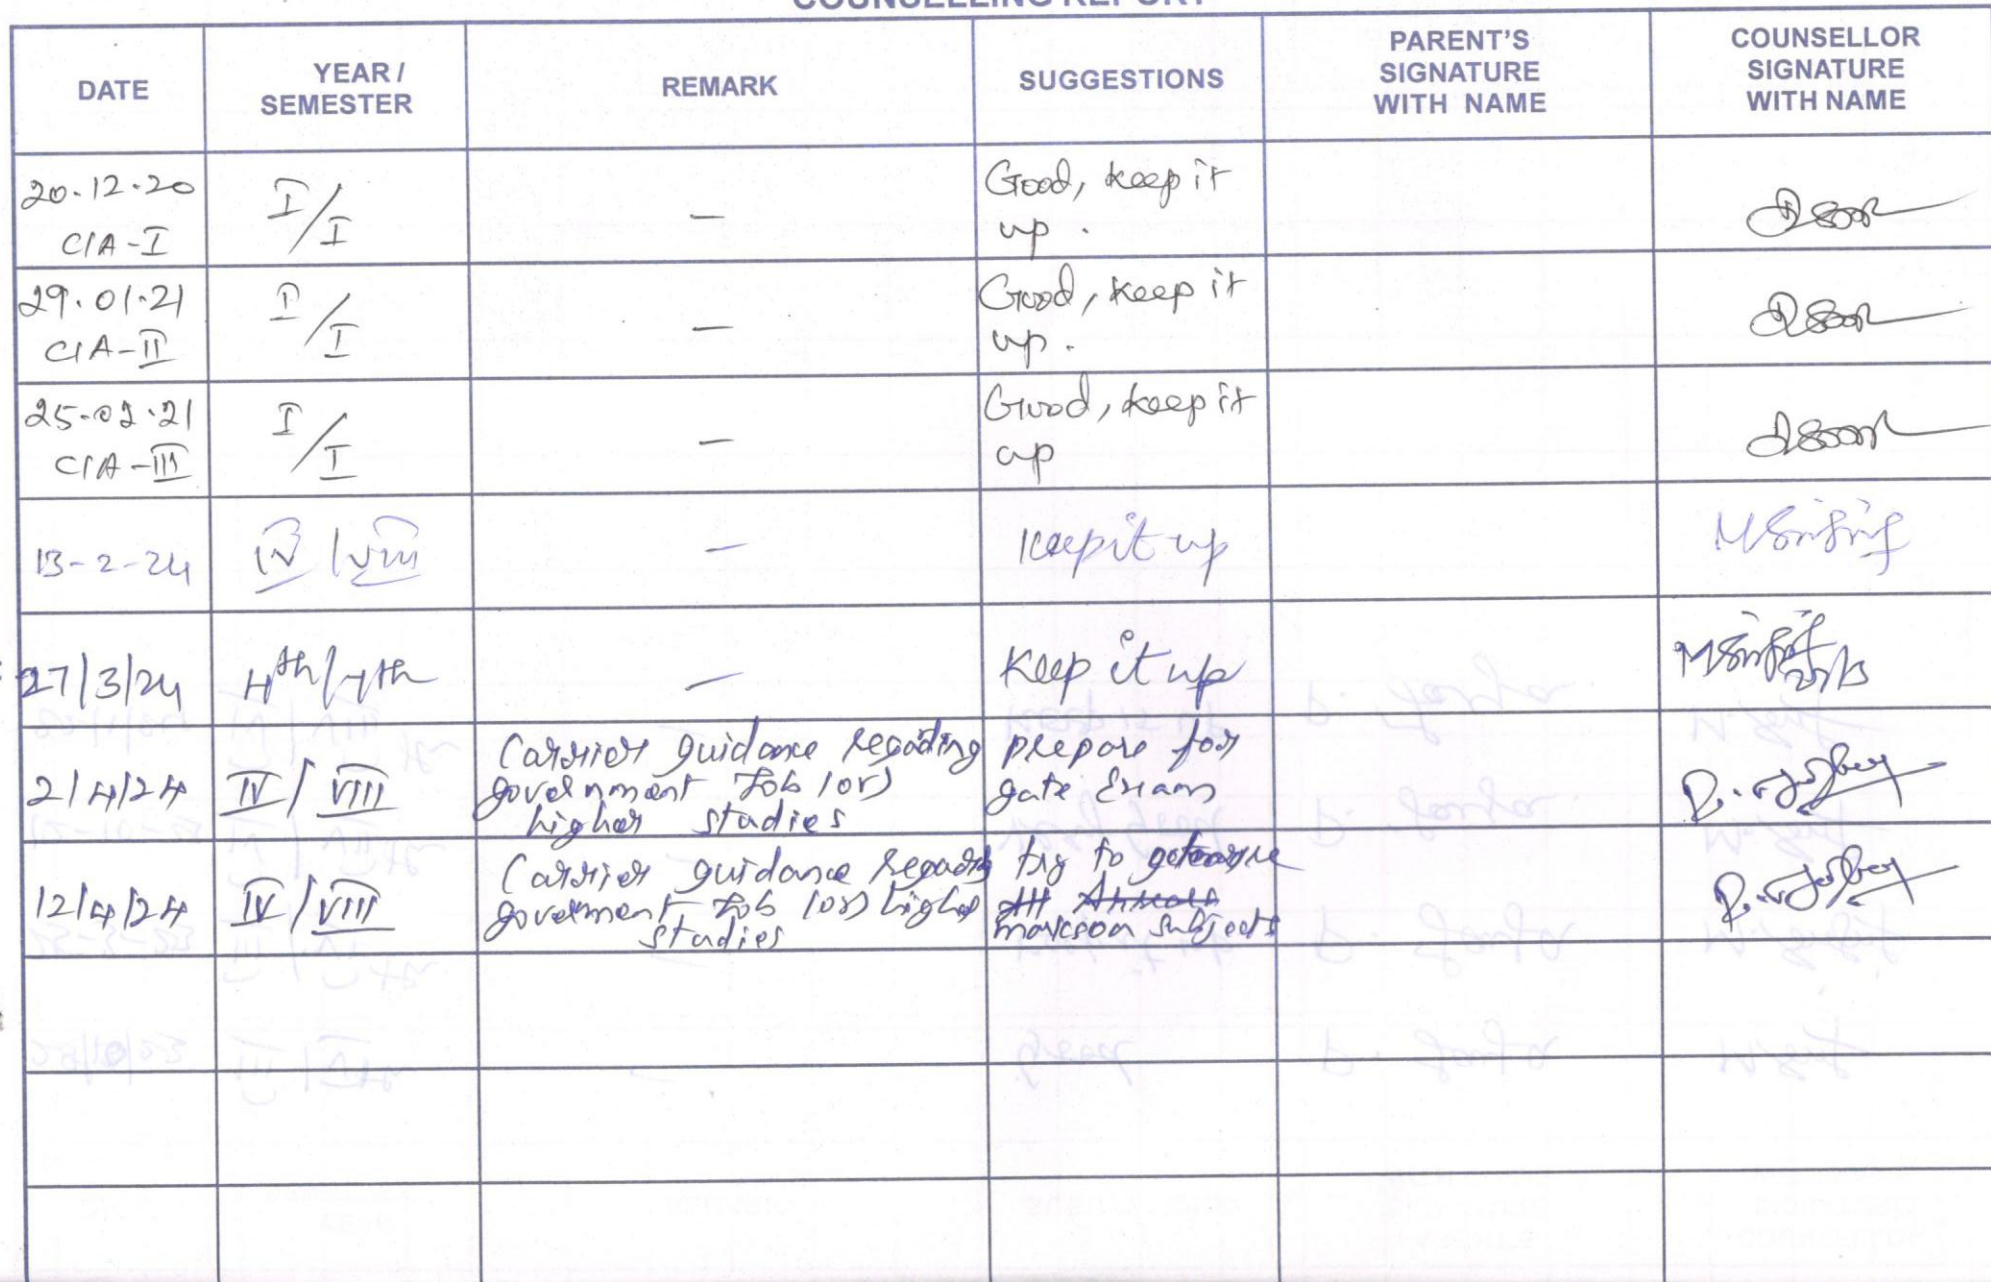 COUNSELLING REPORT
DATE
YEAR /
SEMESTER
REMARK
SUGGESTIONS
PARENT'S
SIGNATURE
WITH NAME
COUNSELLOR
SIGNATURE
WITH NAME
20.12.20
CIA-I
I/I
—
Good, keep it
up.
29.01.21
CIA-II
I/I
—
Good, keep it
up.
25.02.21
CIA-III
I/I
—
Good, keep it
up
13-2-24
IV/VIII
—
Keep it up
27/3/24
4th/
—
Keep it up
2/4/24
IV/VIII
Carrier guidance regarding
government Job (or)
higher studies
prepare for
gate Exams
12/4/24
IV/VIII
Carrier guidance
government Job (or) higher
studies
try to
subjects